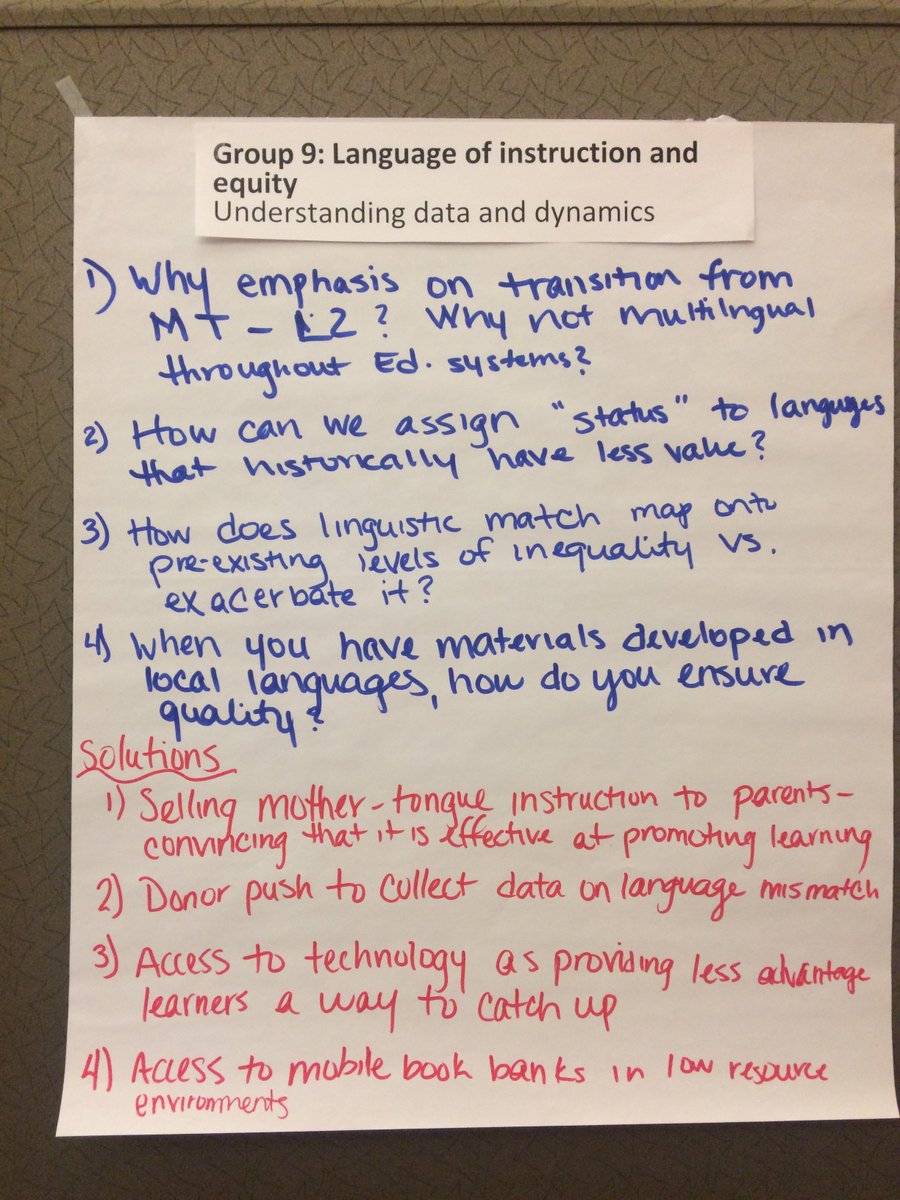 Group 9: Language of instruction and
equity
Understanding data and dynamics
1) Why emphasis on transition from
MT - L2? Why not multilingual
throughout Ed. systems?
2) How can we assign "status" to languges
that historically have less value?
3) How does linguistic match map onto
pre-existing levels of inequality vs.
exacerbate it?
4) When you have materials developed in
local languages, how do you ensure
quality?
Solutions
1) Selling mother-tongue instruction to parents-
convincing that it is effective at promoting learning
2) Donor push to collect data on language mismatch
3) Access to technology as providing less advantage
learners a way to catch up
4) Access to mobile book banks in low resource
environments